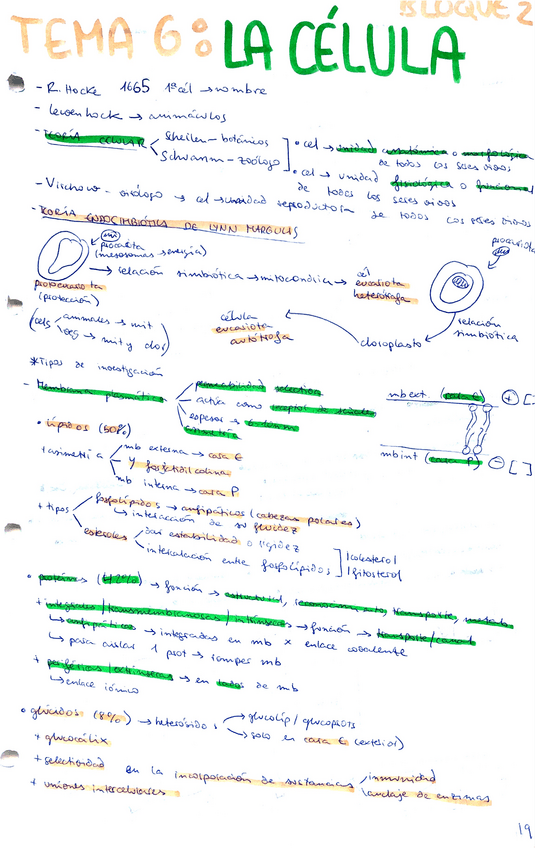 BLOQUE 2
TEMA 6: LA CÉLULA
- R. Hocke 1665 1ª cél → nombre
- Leuwenhock → animáculos
- TEORÍA CELULAR
Scheilen - botánicos
Schwamm - zoólogo
• cel → unidad anatómica o morfológica de todos los seres vivos
• cel → unidad fisiológica o funcional de todos los seres vivos
- Virchow - → cel → unidad reproductora de todos los seres vivos
- TEORÍA ENDOCIMBIÓTICA DE LYNN MARGULIS
procariota
(mesosomas → energía)
procariota
→ relación simbiótica → mitocondria → cél eucariota heterótrofa
protoeucariota
(protección)
relación simbiótica
cloroplasto
célula eucariota autótrofa
(cels
animales → mit
veg → mit y clor)
* Tipos de investigación
- Membrana plasmática
permeabilidad selectiva
actúa como receptor de señales
espesor →
asimetría
mb ext. (cara E) +
mb int (cara P) -
• Lípidos (50%)
+ asimetría
mb externa → cara E y fosfatidil colina
mb interna → cara P
+ tipos
fosfolípidos → anfipáticos (cabezas polares)
↳ interacción de su fluidez
esteroles
dar estabilidad o rigidez
intercalación entre fosfolípidos
colesterol
fitosterol
• proteínas (42%) → función → estructural, reconocimiento, transporte,
+ integrales / transmembranosas / intrínsecas → función → transporte / canal
↳ anfipáticas → integradas en mb x enlace covalente
↳ para aislar 1 prot → romper mb
+ periféricas / extrínsecas → en lados de mb
↳ enlace iónico
• glúcidos (8%) → heterósidos
glucolip / glucoprots
solo en cara E (exterior)
+ glucocálix
+ selectividad en la incorporación de sustancias
inmunidad
anclaje de enzimas
+ uniones intercelulares
19